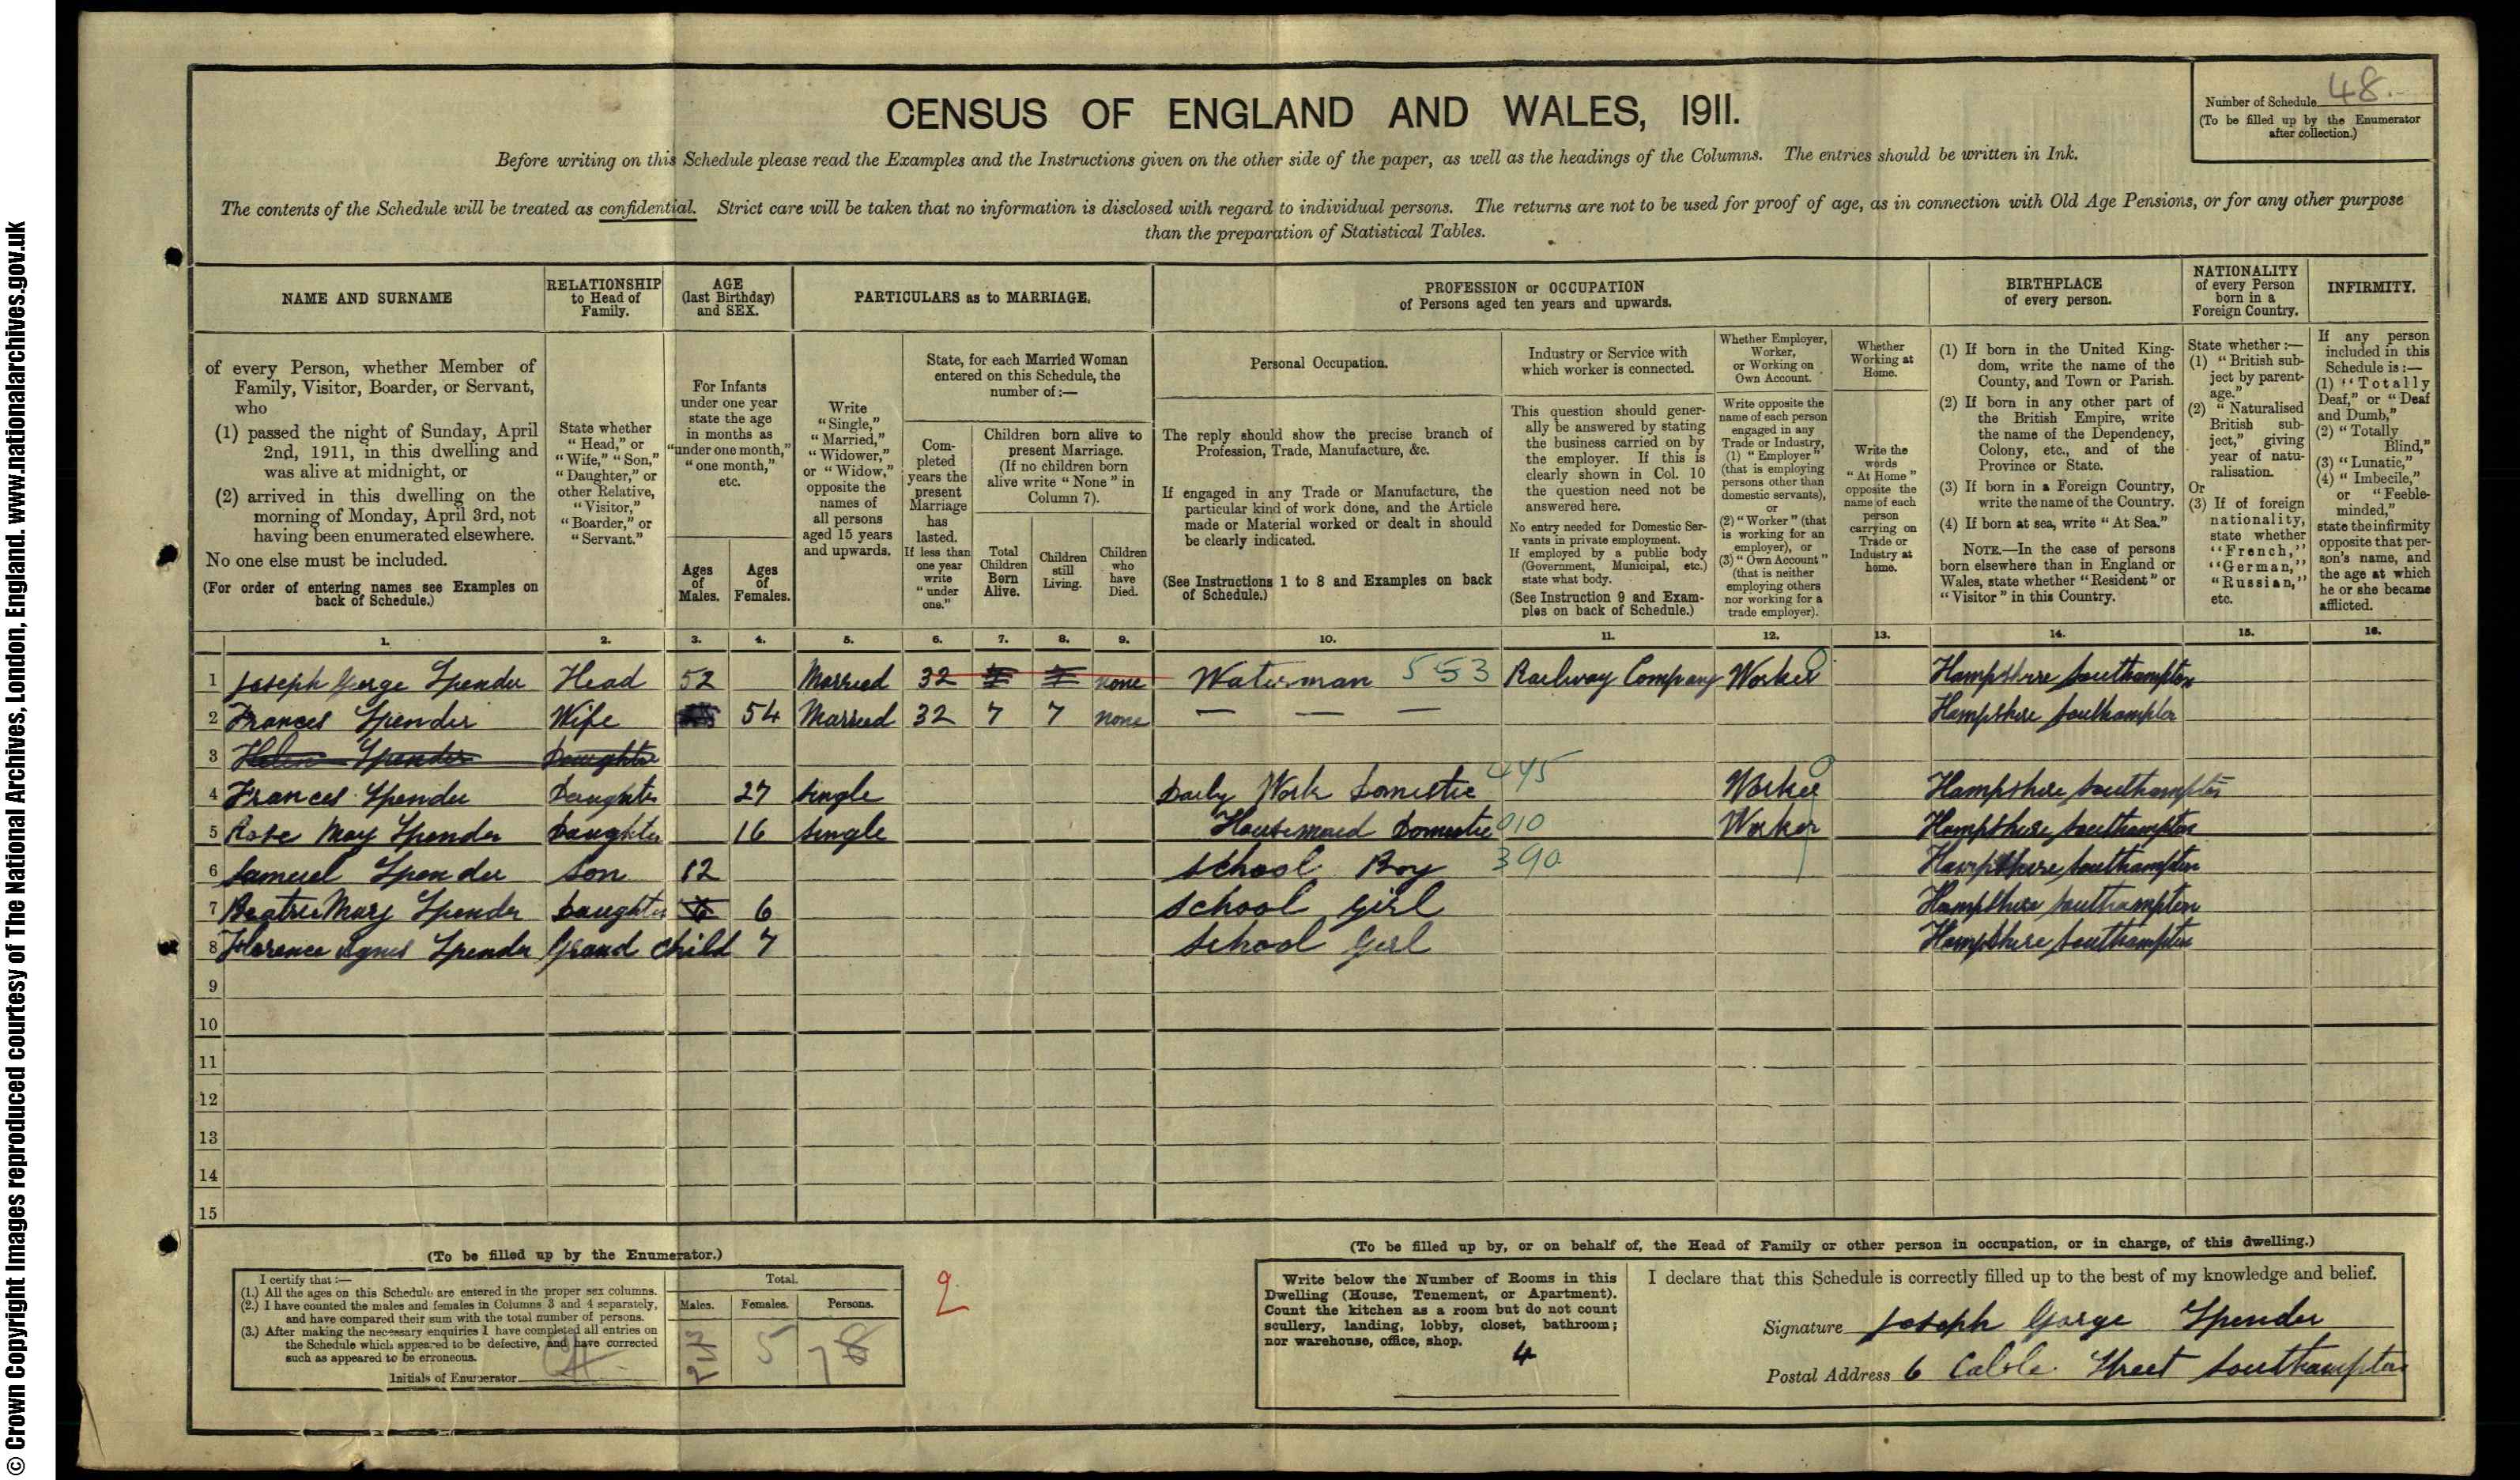 © Crown Copyright Images reproduced courtesy of The National Archives, London, England. www.nationalarchives.gov.uk
Number of Schedule 48.
(To be filled up by the Enumerator
after collection.)
CENSUS OF ENGLAND AND WALES, 1911.
Before writing on this Schedule please read the Examples and the Instructions given on the other side of the paper, as well as the headings of the Columns. The entries should be written in Ink.
The contents of the Schedule will be treated as confidential. Strict care will be taken that no information is disclosed with regard to individual persons. The returns are not to be used for proof of age, as in connection with Old Age Pensions, or for any other purpose
than the preparation of Statistical Tables.
NAME AND SURNAME
of every Person, whether Member of
Family, Visitor, Boarder, or Servant,
who
(1) passed the night of Sunday, April
2nd, 1911, in this dwelling and
was alive at midnight, or
(2) arrived in this dwelling on the
morning of Monday, April 3rd, not
having been enumerated elsewhere.
No one else must be included.
(For order of entering names see Examples on
back of Schedule.)
RELATIONSHIP
to Head of
Family.
State whether
"Head," or
"Wife," "Son,"
"Daughter," or
other Relative,
"Visitor,"
"Boarder," or
"Servant."
AGE
(last Birthday)
and SEX.
For Infants
under one year
state the age
in months as
"under one month,"
"one month,"
etc.
Ages
of
Males.
Ages
of
Females.
PARTICULARS as to MARRIAGE.
Write
"Single,"
"Married,"
"Widower,"
or "Widow,"
opposite the
names of
all persons
aged 15 years
and upwards.
State, for each Married Woman
entered on this Schedule, the
number of:—
Com-
pleted
years the
present
Marriage
has
lasted.
If less than
one year
write
"under
one."
Children born alive to
present Marriage.
(If no children born
alive write "None" in
Column 7).
Total
Children
Born
Alive.
Children
still
Living.
Children
who
have
Died.
PROFESSION or OCCUPATION
of Persons aged ten years and upwards.
Personal Occupation.
The reply should show the precise branch of
Profession, Trade, Manufacture, &c.
If engaged in any Trade or Manufacture, the
particular kind of work done, and the Article
made or Material worked or dealt in should
be clearly indicated.
(See Instructions 1 to 8 and Examples on back
of Schedule.)
Industry or Service with
which worker is connected.
This question should gener-
ally be answered by stating
the business carried on by
the employer. If this is
clearly shown in Col. 10
the question need not be
answered here.
No entry needed for Domestic Ser-
vants in private employment.
If employed by a public body
(Government, Municipal, etc.)
state what body.
(See Instruction 9 and Exam-
ples on back of Schedule.)
Whether Employer,
Worker,
or Working on
Own Account.
Write opposite the
name of each person
engaged in any
Trade or Industry,
(1) "Employer"
(that is employing
persons other than
domestic servants),
or
(2) "Worker" (that
is working for an
employer), or
(3) "Own Account"
(that is neither
employing others
nor working for a
trade employer).
Whether
Working at
Home.
Write the
words
"At Home"
opposite the
name of each
person
carrying on
Trade or
Industry at
home.
BIRTHPLACE
of every person.
(1) If born in the United King-
dom, write the name of the
County, and Town or Parish.
(2) If born in any other part of
the British Empire, write
the name of the Dependency,
Colony, etc., and of the
Province or State.
(3) If born in a Foreign Country,
write the name of the Country.
(4) If born at sea, write "At Sea."
NOTE.—In the case of persons
born elsewhere than in England or
Wales, state whether "Resident" or
"Visitor" in this Country.
NATIONALITY
of every Person
born in a
Foreign Country.
State whether:—
(1) "British sub-
ject by parent-
age."
(2) "Naturalised
British sub-
ject," giving
year of natu-
ralisation.
Or
(3) If of foreign
nationality,
state whether
"French,"
"German,"
"Russian,"
etc.
INFIRMITY.
If any person
included in this
Schedule is:—
(1) "Totally
Deaf," or "Deaf
and Dumb,"
(2) "Totally
Blind,"
(3) "Lunatic,"
(4) "Imbecile,"
or "Feeble-
minded,"
state the infirmity
opposite that per-
son's name, and
the age at which
he or she became
afflicted.
1. 2. 3. 4. 5. 6. 7. 8. 9. 10. 11. 12. 13. 14. 15. 16.
1 Joseph George Spender Head 52 Married 32 7 7 none Waterman 553 Railway Company Worker Hampshire Southampton
2 Frances Spender Wife 54 Married 32 7 7 none — — — Hampshire Southampton
3 Helen Spender Daughter
4 Frances Spender Daughter 27 Single Daily Work Domestic 445 Worker Hampshire Southampton
5 Rose May Spender Daughter 16 Single Housemaid Domestic 010 Worker Hampshire Southampton
6 Samuel Spender Son 12 School Boy 390 Hampshire Southampton
7 Beatrice Mary Spender Daughter 6 School Girl Hampshire Southampton
8 Florence Agnes Spender Grand Child 7 School Girl Hampshire Southampton
9
10
11
12
13
14
15
(To be filled up by the Enumerator.)
I certify that:—
(1.) All the ages on this Schedule are entered in the proper sex columns.
(2.) I have counted the males and females in Columns 3 and 4 separately,
and have compared their sum with the total number of persons.
(3.) After making the necessary enquiries I have completed all entries on
the Schedule which appeared to be defective, and have corrected
such as appeared to be erroneous.
Initials of Enumerator
Total.
Males. Females. Persons.
2 3 5 7 8
2
(To be filled up by, or on behalf of, the Head of Family or other person in occupation, or in charge, of this dwelling.)
Write below the Number of Rooms in this
Dwelling (House, Tenement, or Apartment).
Count the kitchen as a room but do not count
scullery, landing, lobby, closet, bathroom;
nor warehouse, office, shop.
4
I declare that this Schedule is correctly filled up to the best of my knowledge and belief.
Signature Joseph George Spender
Postal Address 6 Cable Street Southampton